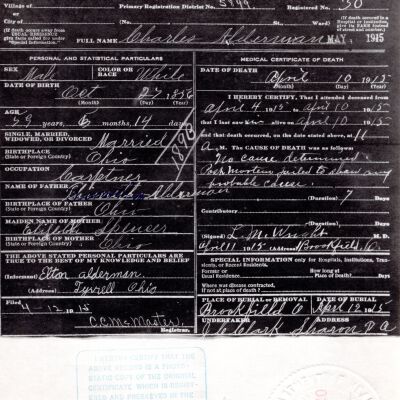 Village of
Primary Registration District No. 5799
Registered No. 50
City of
(No.
St.;
Ward)
(If death occurred in a Hospital or Institution, give its NAME instead of street and number.)
(If death occurs away from USUAL RESIDENCE give facts called for under "Special Information.")
FULL NAME Charles Alderman
MAY, 1915
PERSONAL AND STATISTICAL PARTICULARS
SEX Male
COLOR OR RACE White
DATE OF BIRTH
Oct 27 1856
(Month) (Day) (Year)
AGE
years, months, 14 days
SINGLE, MARRIED, WIDOWED, OR DIVORCED Married
BIRTHPLACE
(State or Foreign Country) Ohio
OCCUPATION Carpenter
NAME OF FATHER Alderman
BIRTHPLACE OF FATHER
(State or Foreign Country) Ohio
MAIDEN NAME OF MOTHER Spencer
BIRTHPLACE OF MOTHER
(State or Foreign Country) Ohio
THE ABOVE STATED PERSONAL PARTICULARS ARE TRUE TO THE BEST OF MY KNOWLEDGE AND BELIEF
(Informant) Elton Alderman
(Address) Tyrrell Ohio
Filed
4-12-1915
C.C. McMaster
Registrar.
MEDICAL CERTIFICATE OF DEATH
DATE OF DEATH
April 10 1915
(Month) (Day) (Year)
I HEREBY CERTIFY, That I attended deceased from
April 4 1915, to April 10 1915
that I last saw him alive on April 10 1915
and that death occurred, on the date stated above, at
M. The CAUSE OF DEATH was as follows:
No cause determined.
Post Mortem failed to show any
probable cause.
(Duration) 7 Days
Contributory
(Duration) Days
(Signed) L.M. Wright
April 11 1915 (Address) Brookfield, O.
SPECIAL INFORMATION only for Hospitals, Institutions, Transients, or Recent Residents.
Former or Usual Residence
How long at Place of Death? Days
Where was disease contracted, if not at place of death?
PLACE OF BURIAL OR REMOVAL
DATE OF BURIAL
Brookfield O April 12 1915
UNDERTAKER
ADDRESS
Clark Sharon PA
I HEREBY CERTIFY THAT THE
ABOVE RECORD IS A PHOTO-
STATIC COPY OF THE ORIGINAL
CERTIFICATE WHICH IS REGIST-
ERED AND PRESERVED IN THE